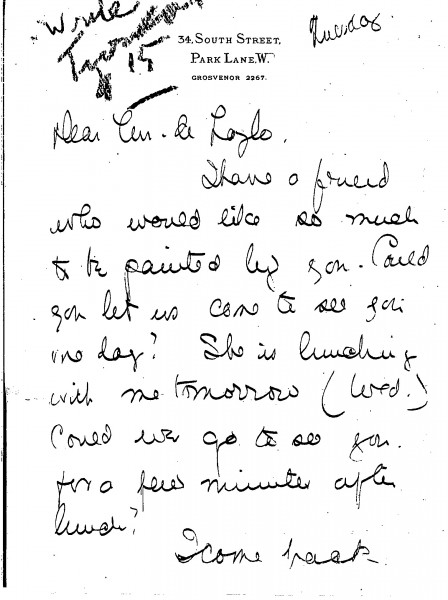 Write
15
34, South Street,
Park Lane, W.
Grosvenor 2267.
Tuesday
Dear
I have a friend
who would like so much
to be painted by you. Could
you let us come to see you
one day? She is lunching
with me tomorrow (Wed.)
Could we go to see you
for a few minutes after
lunch?
I come back